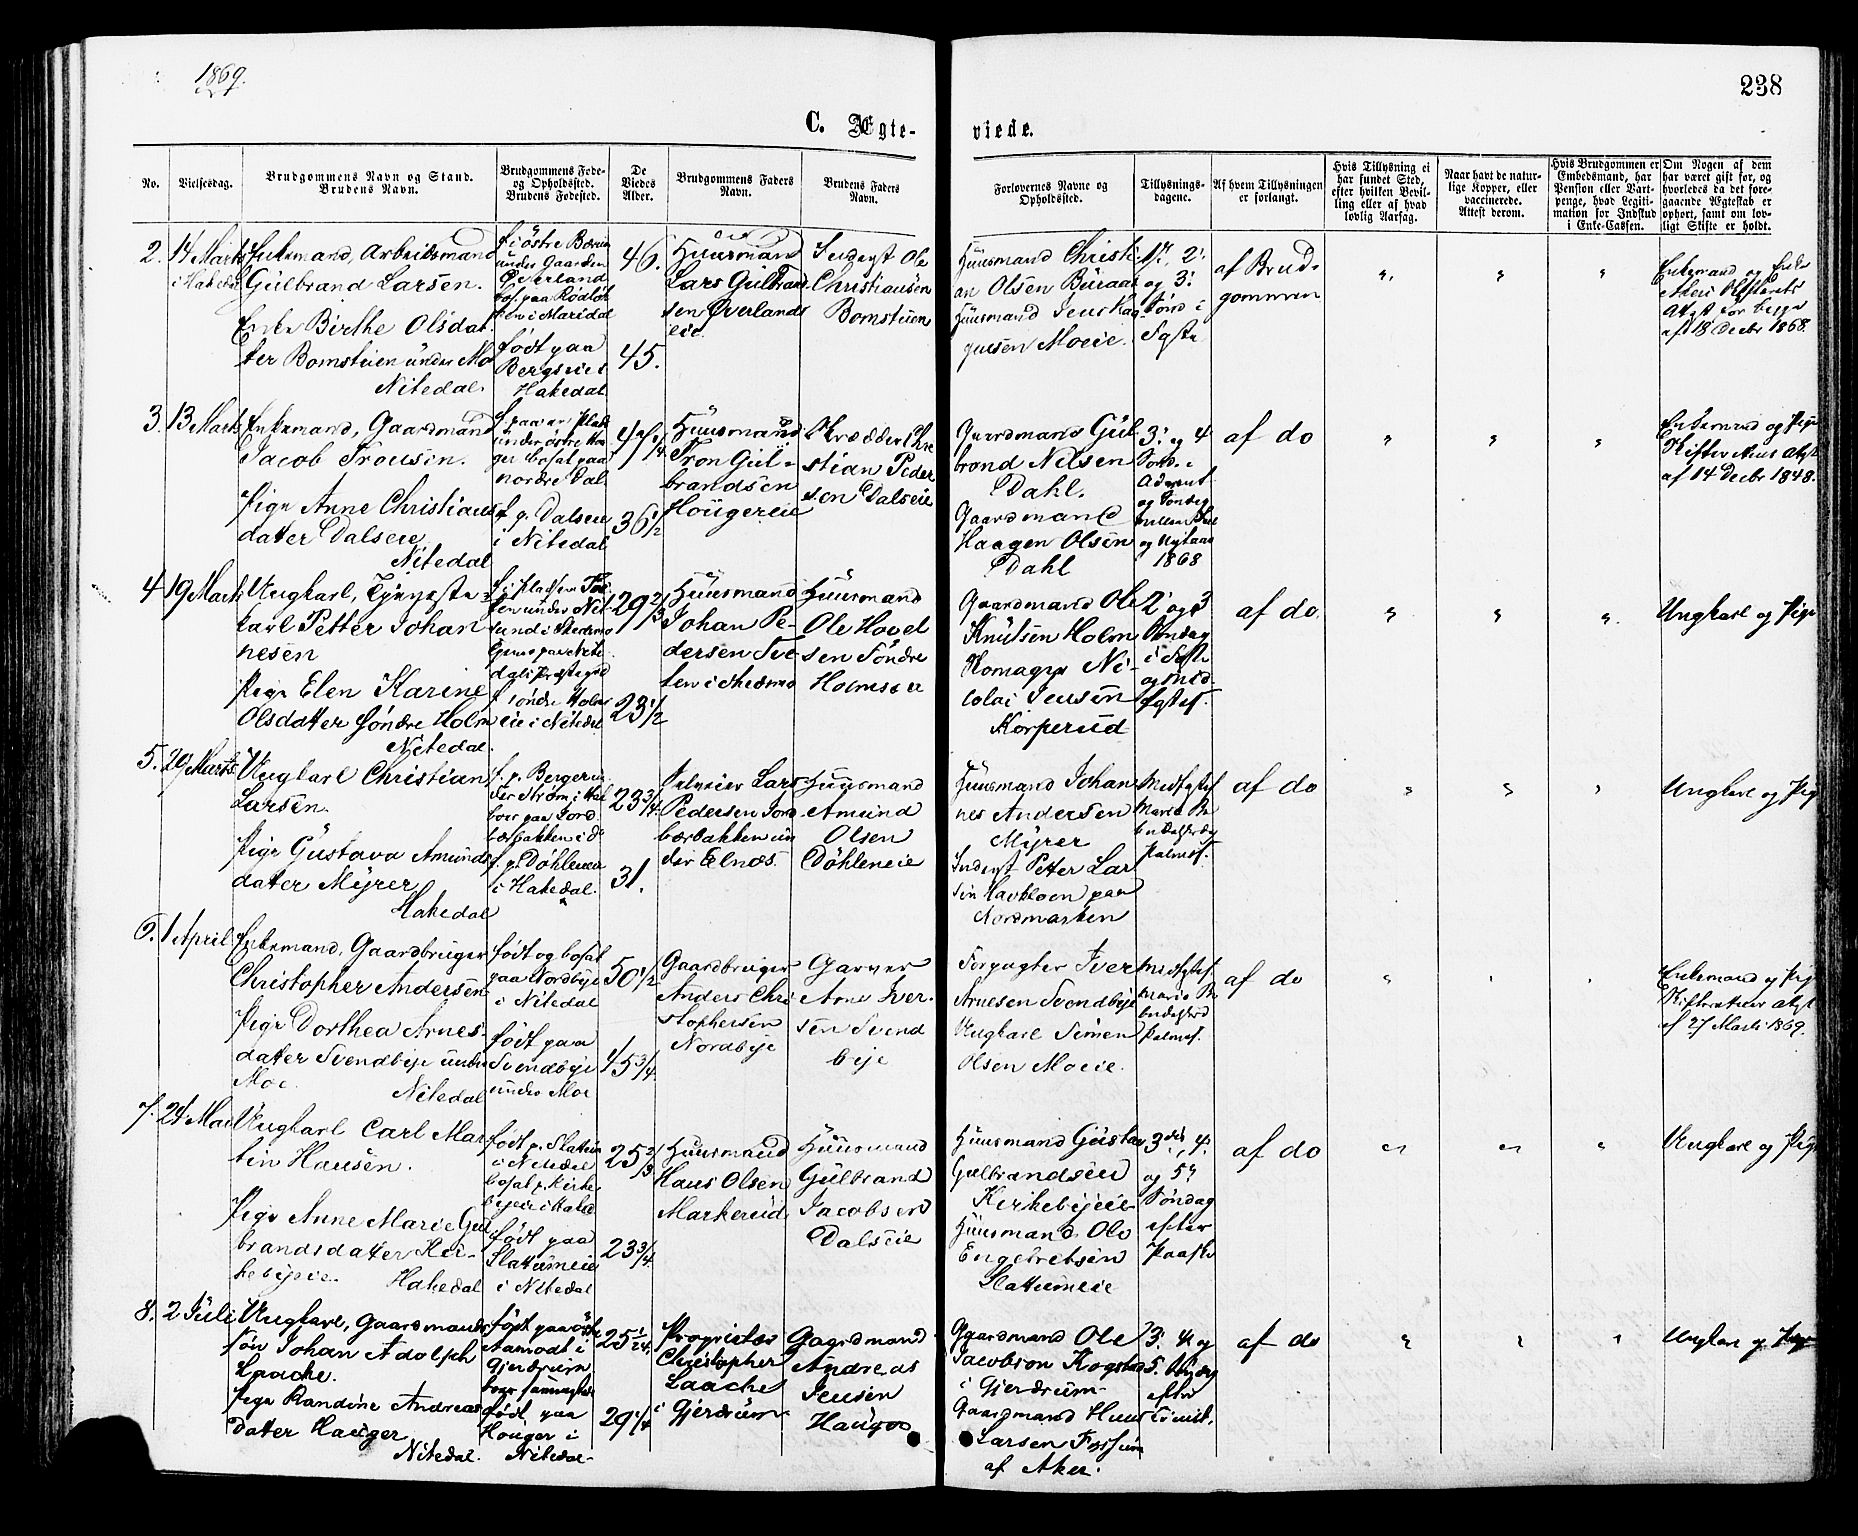 1869.
238
C. Ægte-
viede.
No.
Vielsesdag.
Brudgommens Navn og Stand.
Brudens Navn.
Brudgommens Føde-
og Opholdssted.
Brudens Fødested.
De
Viedes
Alder.
Brudgommens Faders
Navn.
Brudens Faders
Navn.
Forlovernes Navne og
Opholdssted.
Tillysnings-
dagene.
Af hvem Tillysningen
er forlangt.
Hvis Tillysning ei
har fundet Sted,
efter hvilken Bevil-
ling eller af hvad
lovlig Aarsag.
Naar havt de natur-
lige Kopper, eller
vaccinerede.
Attest derom.
Hvis Brudgommen er
Embedsmand, har
Pension eller Vart-
penge, hvad Legiti-
mation for Indskud
i Enke-Cassen.
Om Nogen af dem
har været gift før, og
hvorledes da det fore-
gaaende Ægteskab er
ophørt, samt om lov-
ligt Skifte er holdt.
2.
14 Marts
i Hakedal
Enkemand, Arbeidsmand
Gulbrand Larsen.
Enke Birthe Olsdat-
ter Bomstuen under Mo
Nitedal.
f. i østre Bærum
under Gaarden
Øverland
bos. paa Rødløk-
ken i Maridal
født paa
Bergseie i
Hakedal
46.
45.
Huusmand
Lars Gulbrand-
sen Øverlands
eie
Inderst Ole
Christiansen
Bomstuen
Huusmand Christi-
an Olsen Buraas
Huusmand Jens Mag-
nussen Moeie.
1ste, 2:
og 3:
Sønd i
Faste
af Brud-
gommen
Enkemand og Enke
Akers Skifterets
Attest for begge
af 18 Decbr 1868.
3.
13 Marts
Enkemand, Gaardmand
Jacob Tronsen.
Pige Anne Christians
datter Dalseie
Nitedal
f. paa en Plads
under østre Hau-
ger bosat paa
nordre Dal
f. p. Dalseie
i Nitedal
36 1/2
Huusmand
Tron Gul-
brandsen
Hougereie
Skrædder Chri
stian Peder
sen Dalseie
Gaardmand Gul
brand Nilsen
Dahl.
Gaardmand
Haagen Olsen
Dahl
3: og 4
Sønd. i
Advent
og Søndag
mellem Juul
og Nytaar
1868
af do
Enkemand og Pige
Skifterettens Attest
af 14 Decbr 1848.
4
19 Marts
Ungkarl, Tjeneste-
karl Petter Johan
nesen
Pige Elen Karine
Olsdatter søndre Holm
Nitedal.
f. søndre Holms
eie i Nitedal
29 2/3
23 1/2
Huusmand
Johan Pe-
dersen Tve-
ten i Skedsmo
Huusmand
Ole Hovel
sen Søndre
Holmseie
Gaardmand Ole
Knutsen Holm
Komager Ni-
colai Jensen
Korperud
2: og 3
Søndag
i Faste
og Mid
fastes.
af do.
Ungkarl og Pige
5.
29 Marts
Ungkarl Christian
Larsen.
Pige Gustava Amunds
datter Myrer
Hakedal
f. p. Døhleneie
i Hakedal.
23 3/4
31.
Selveier Lars
Pedersen Jord
bærbakken un
der Elnæs.
Huusmand
Amund
Olsen
Døhleneie
Huusmand Johan
nes Andersen
Myrer
Inderst Petter Lar
sen Havkloen paa
Nordmarken
Midfastes.
Maria Be
budelsesdag
Palmes.
af do
Ungkarl og Pige
6.
1 April
Enkemand, Gaardbruger
Christopher Andersen
Pige Dorthea Arnes-
datter Svendbye under
Moe.
Nitedal
født og bosat
paa Nordbye
i Nitedal
født paa
Svendbye
under Moe
50 1/2
45 3/4
Gaardbruger
Anders Chri
stophersen
Nordbye
Garver
Arne Iver-
sen Svend
bye
Forpagter Iver
Arnesen Svendbye
Ungkarl Simen
Olsen Moeie.
Midfastes.
Maria Be
budelsesd
Palmes.
af do
Enkemand og Pige
Skifterettens Attest
af 27 Marts 1869.
7.
24 Mai
Ungkarl Carl Mar
tin Hansen.
Pige Anne Marie Gul
brandsdatter Kir-
kebyeie.
Hakedal
født p. Slattum
i Nitedal
bosat p. Kirke
byeie i Haked
født paa
Slattumeie
i Nitedal
25 2/3
23 3/4
Huusmand
Hans Olsen
Markerud
Huusmand
Gulbrand
Jacobsen
Dalseie
Huusmand Gustav
Gulbrandsen
Kirkebyeie
Huusmand Ole
Engebretsen
Slattumeie
3die, 4:
og 5te
Søndag
efter
Paaske
af do
Ungkarl og Pige
8.
2 Juli
Ungkarl, Gaardmands
søn Johan Adolph
Laache.
Pige Randine Andreas
datter Hauger
Nitedal.
født paa østre
Aamodt i
Gjerdrum
boer sammesteds
født paa
Houger i
Nitedal
25 1/24
29 1/4
Proprietær
Christopher
Laache
i Gjerdrum
Gaardmand
Andreas
Jensen
Hauger
Gaardmand Ole
Jacobson Kogstad
i Gjerdrum
Gaardmand Hans
Larsen Fossum
af Aker.
3: 4: og
5. Søndag
efter
Trinit.
af do
Ungkarl og Pige